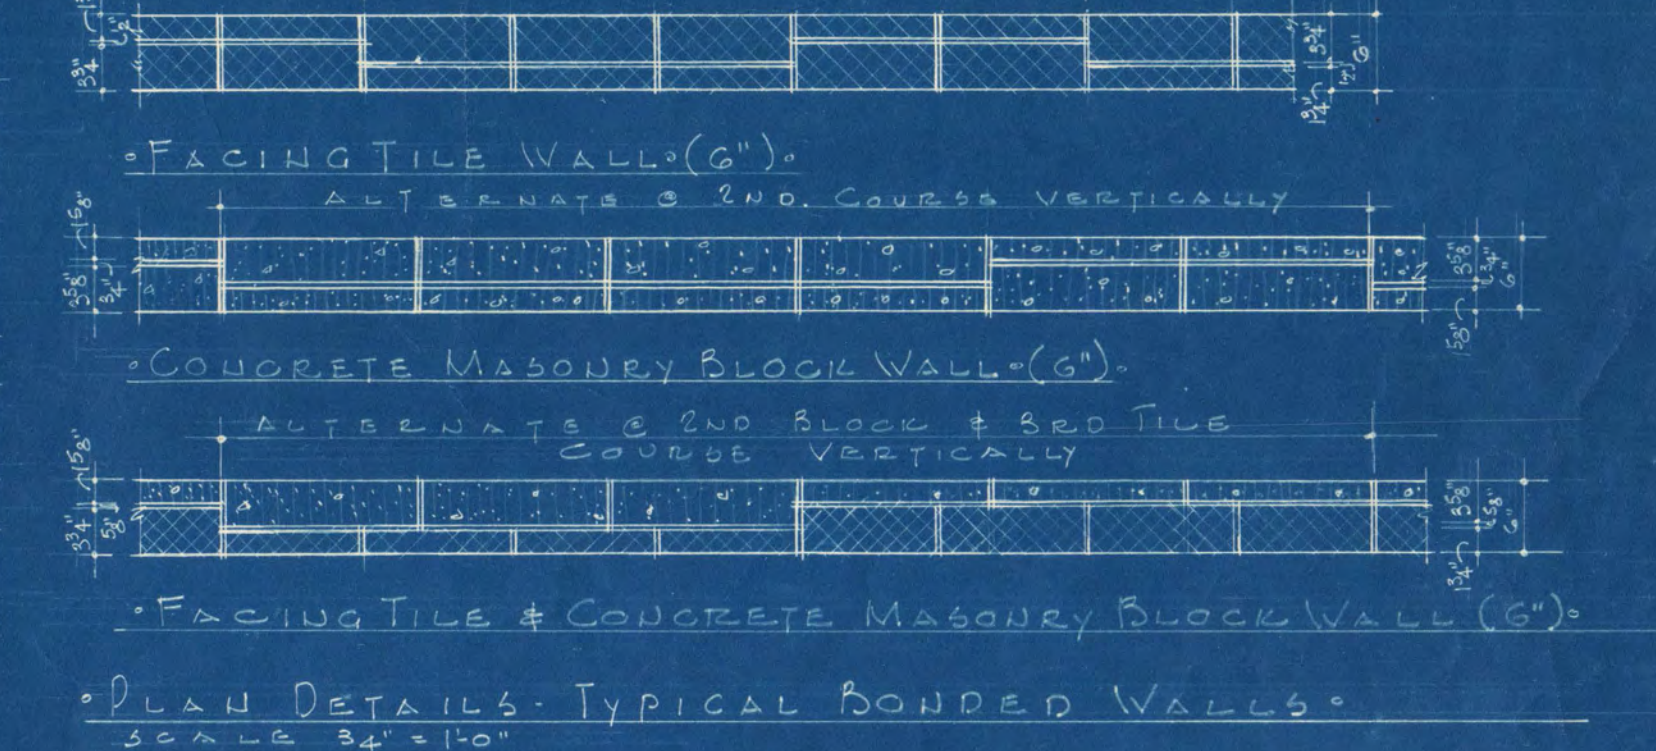 3¾" ½"
3¾" ½" 6"
1¾"
•FACING TILE WALL•(6")•
ALTERNATE @ 2ND. COURSE VERTICALLY
1⅝"
3⅝" ¾"
3⅝" ¾" 6"
1⅝"
•CONCRETE MASONRY BLOCK WALL•(6")•
ALTERNATE @ 2ND BLOCK & 3RD TILE
COURSE VERTICALLY
1⅝"
3¾" ⅝"
3⅝" ⅝" 6"
1¾"
•FACING TILE & CONCRETE MASONRY BLOCK WALL (6")•
•PLAN DETAILS - TYPICAL BONDED WALLS•
SCALE ¾" = 1'-0"